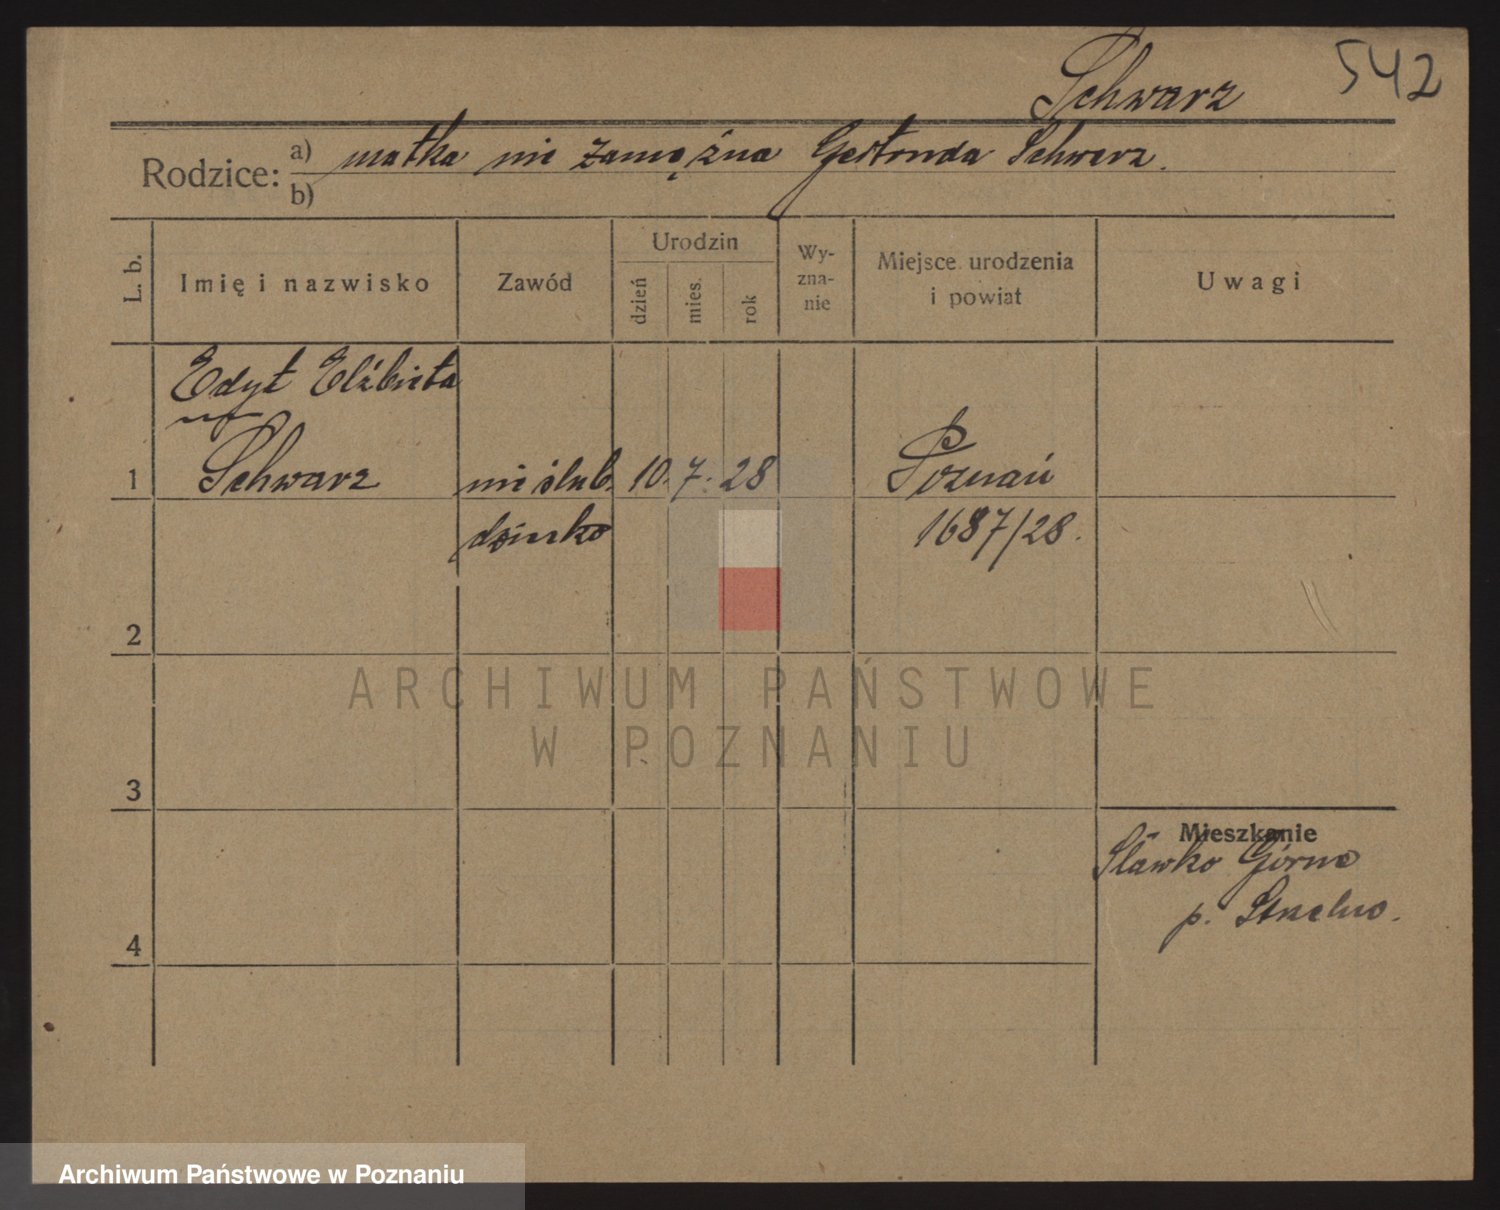 Schwarz 542
Rodzice: a) matka nie zamężna Gertruda Schwarz.
b)
L. b. Imię i nazwisko Zawód Urodzin dzień mies. rok Wy-zna-nie Miejsce urodzenia i powiat Uwagi
Edyt Elżbieta
1 Schwarz nie ślub. 10. 7. 28 Poznań
dziecko 1687/28.
2
ARCHIWUM PAŃSTWOWE
W POZNANIU
3
Mieszkanie
Sławko Górne
4 p. Strzelno.
Archiwum Państwowe w Poznaniu